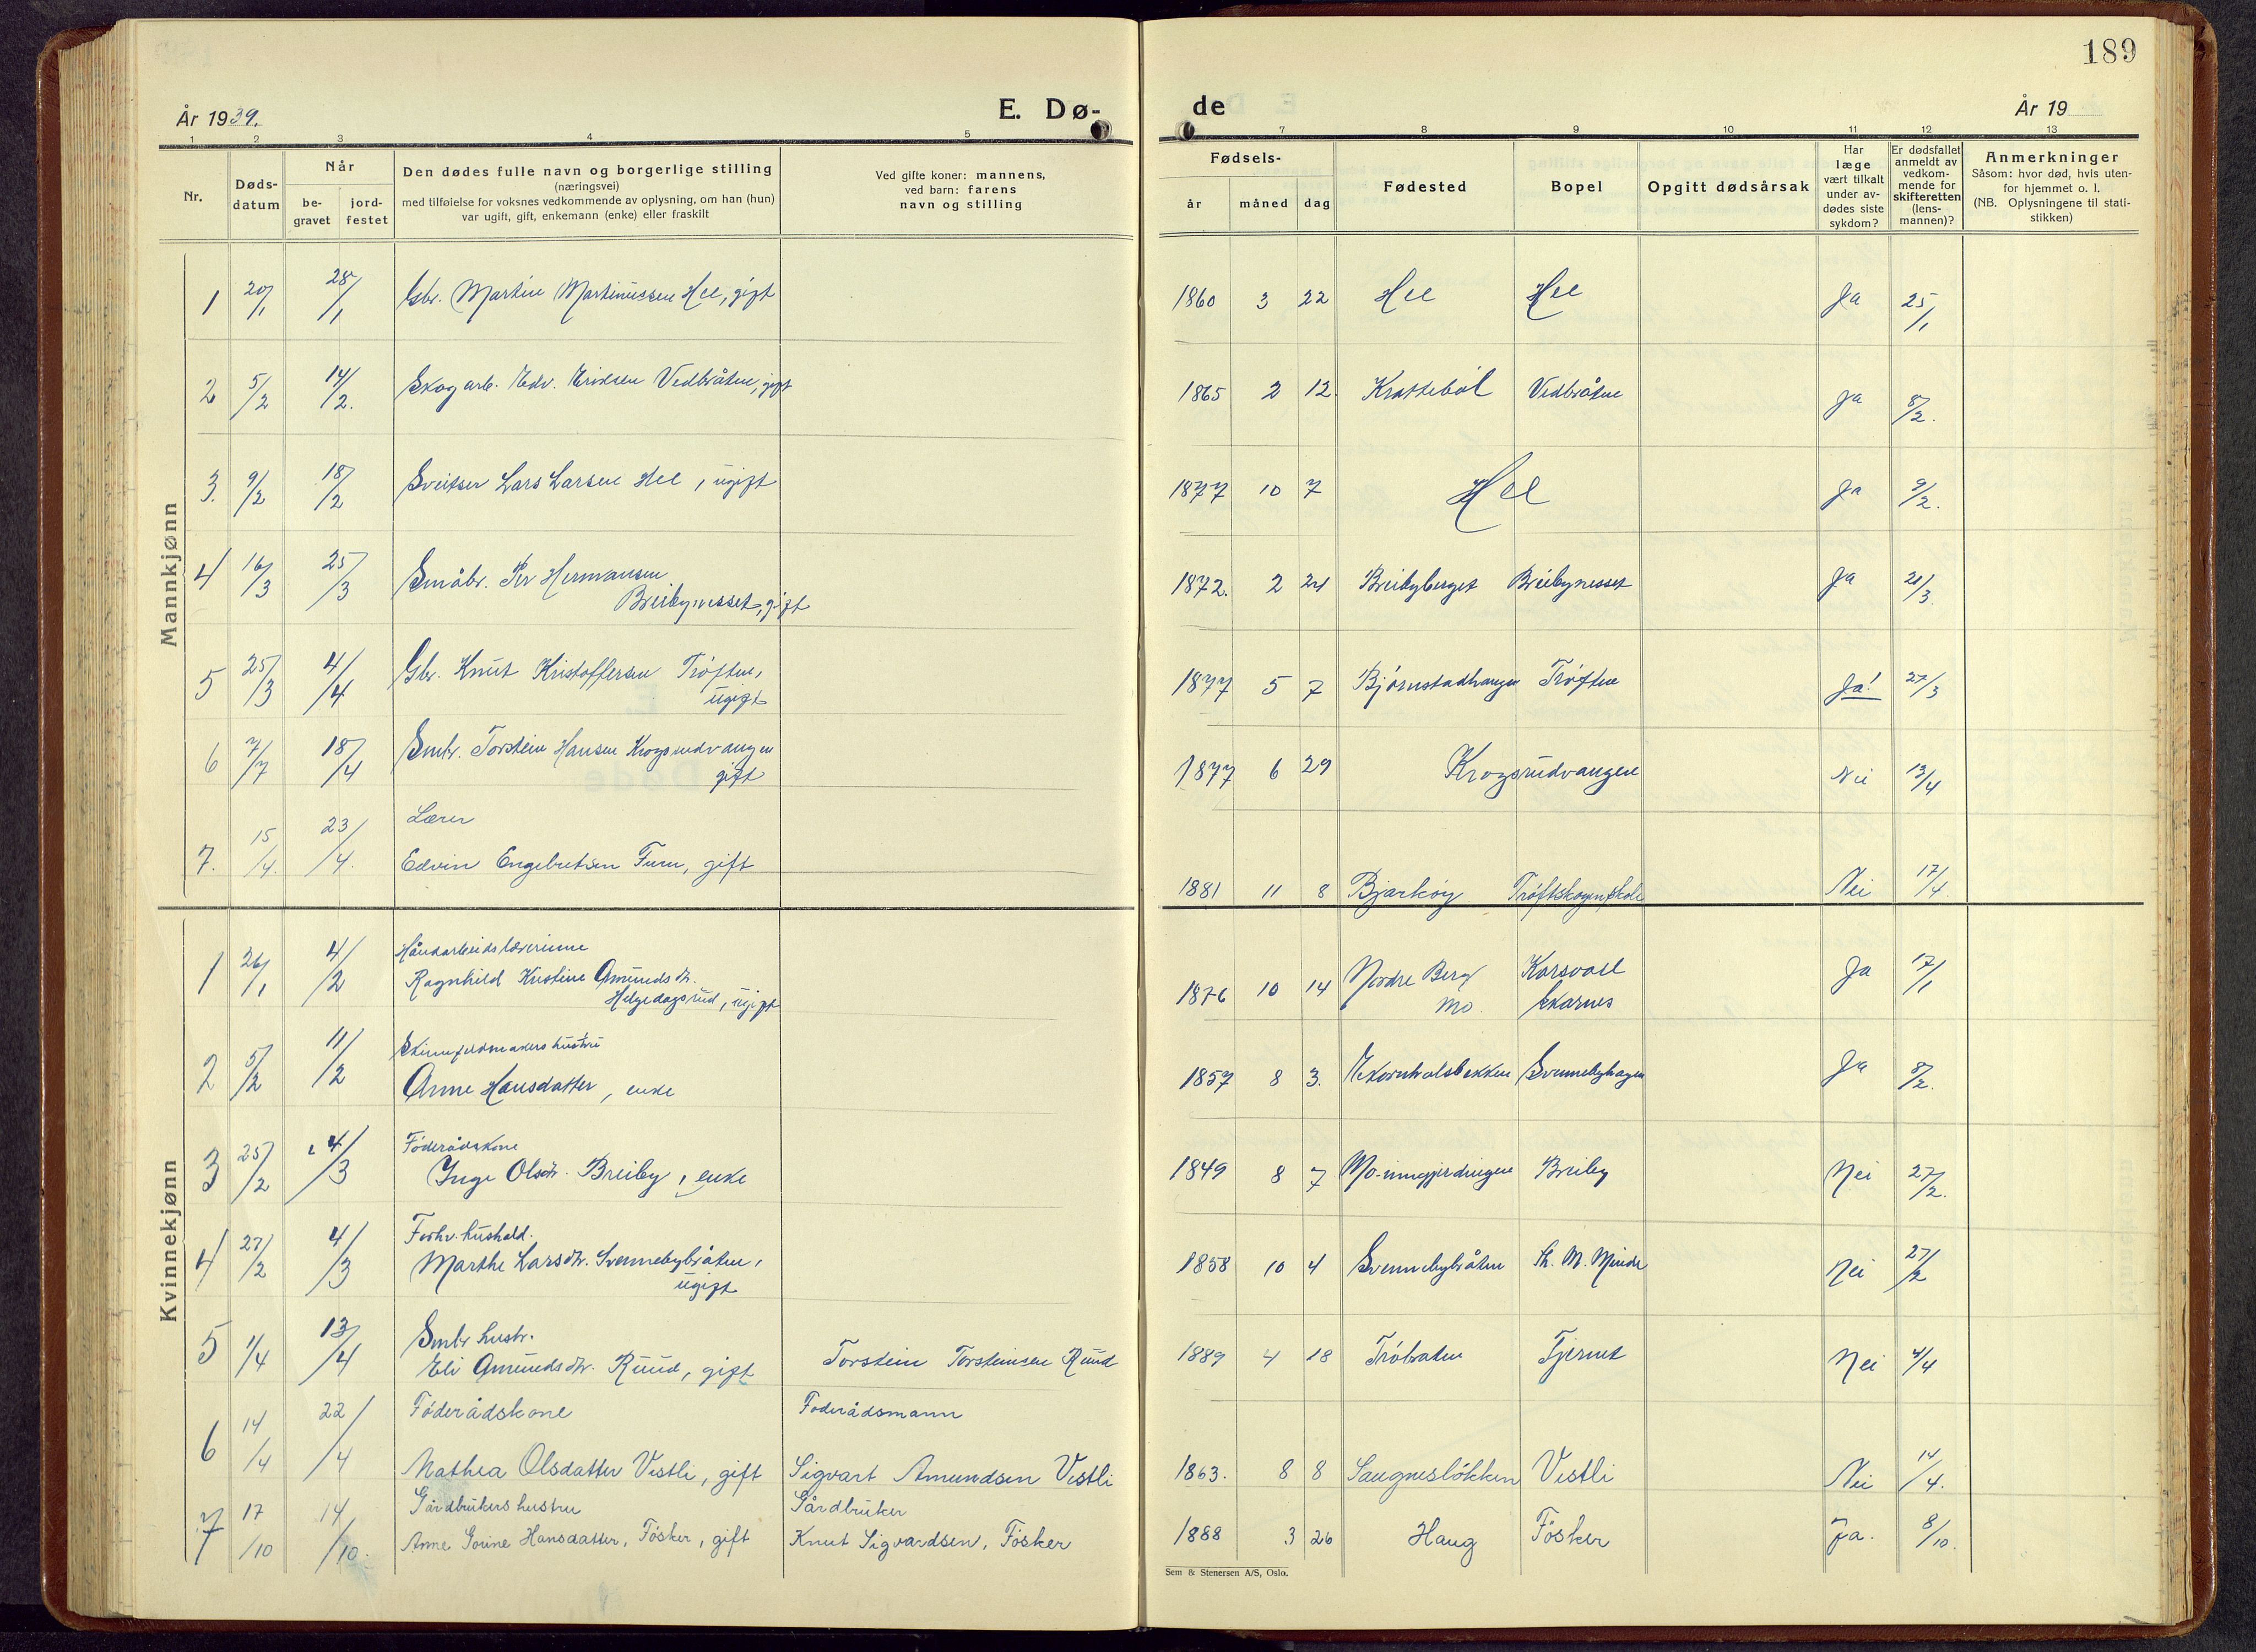 189
År 1939.
E. Dø-
de
År 19
1 2 3 4 5
7 8 9 10 11 12 13
Nr.
Døds-
datum
Når
be-
gravet
jord-
festet
Den dødes fulle navn og borgerlige stilling
(næringsvei)
med tilføielse for voksnes vedkommende av oplysning, om han (hun)
var ugift, gift, enkemann (enke) eller fraskilt
Ved gifte koner: mannens,
ved barn: farens
navn og stilling
Fødsels-
år måned dag
Fødested
Bopel
Opgitt dødsårsak
Har
læge
vært tilkalt
under av-
dødes siste
sykdom?
Er dødsfallet
anmeldt av
vedkom-
mende for
skifteretten
(lens-
mannen)?
Anmerkninger
Såsom: hvor død, hvis uten-
for hjemmet o. l.
(NB. Oplysningene til stati-
stikken)
Mannkjønn
1 20/1 28/1 Gbr. Martin Martinussen Hel, gift 1860 3 22 Hel Hel Ja 25/1
2 5/2 14/2. Skogarb. Edv. Eriksen Vedbråten, gift 1865 2 12. Krattebøl Vedbråten Ja 8/2.
3. 9/2 18/2 Sveitser Lars Larsen Hel, ugift 1877 10 7 Hel Ja 9/2.
4 16/3 25/3 Småbr. Per Hermansen
Breibynesset, gift 1872. 2 24 Breibyberget Breibynesset Ja 21/3.
5 25/3 4/4 Gbr. Knut Kristoffersen Trøften,
ugift 1877 5 7 Bjørnstadhaugen Trøften Ja! 27/3
6 7/7 18/4 Smbr. Torstein Hansen Krogsrudvangen
gift 1877 6 29 Krogsrudvangen Nei 13/4
Lærer
7. 15/4. 23/4. Edvin Engebretsen Furu, gift 1881 11 8 Bjarkøy Trøftskogen skole Nei 17/4.
Kvinnekjønn
Håndarbeidslærerinne
1 26/1 4/2 Ragnhild Kristine Amundsdtr.
Helgedagsrud, ugift 1876 10 14 Nordre Berg Korsvoll
Mo. Skarnes Ja 17/1
2 5/2 11/2 Skinnfeldmakers hustru
Anne Hansdatter, enke 1857 8 3. Ekornholsbekken Svennebyhagen Ja 8/2.
3 25/2 4/3 Føderådskone
Inge Olsdtr. Breiby, enke 1849 8 7 Mo-inngjerdingen Breiby Nei 27/2.
4 27/2 4/3 Forhv. hushold.
Marthe Larsdtr. Svennebybråten,
ugift 1858 10 4 Svennebybråten Th. M. Minde Nei 27/2
5 1/4 13/4 Smbr hustr.
Eli Amundsdtr. Ruud, gift Torstein Torsteinsen Ruud 1889 4 18 Trøbråten Tjernet Nei 4/4
6 14/4 22/4 Føderådskone Føderådsmann
Mathea Olsdatter Vestli, gift Sigvart Amundsen Vestli 1863. 8 8 Saugnesløkken Vestli Nei 14/4.
7 17/10 14/10. Gårdbrukers hustru Gårdbruker
Anne Gorine Hansdatter, Føsker, gift Knut Sigvardsen, Føsker 1888 3 26 Haug Føsker Ja. 8/10.
Sem & Stenersen A/S, Oslo.